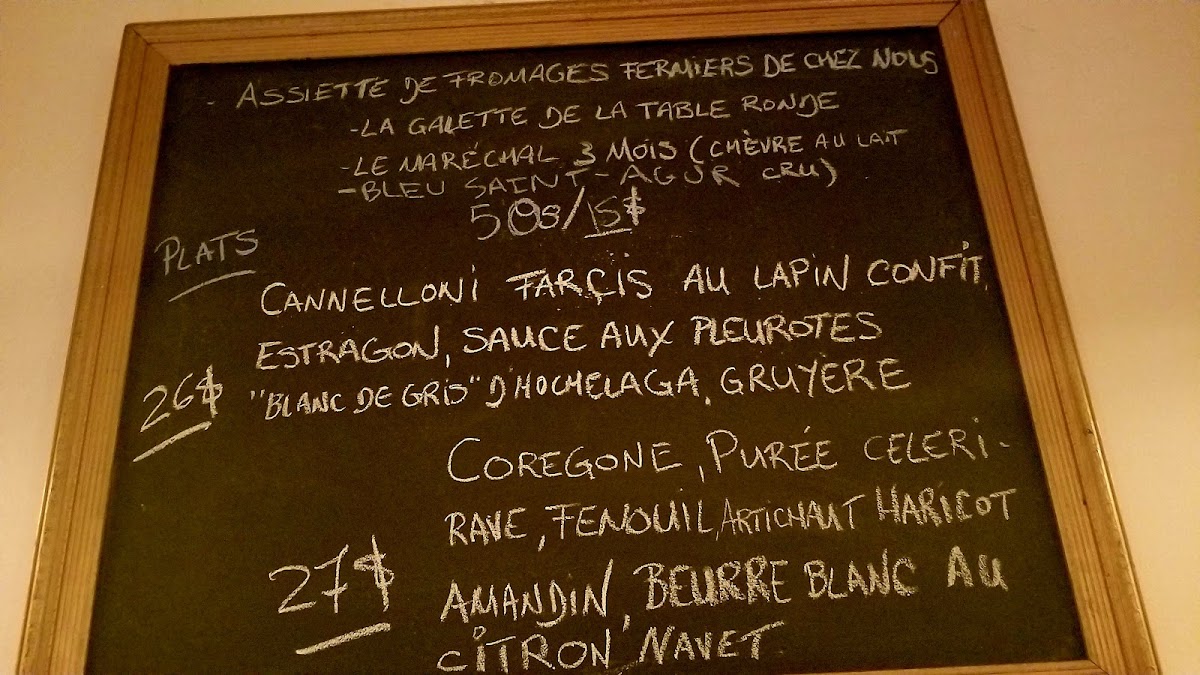 - ASSIETTE DE FROMAGES FERMIERS DE CHEZ NOUS
-LA GALETTE DE LA TABLE RONDE
-LE MARÉCHAL 3 MOIS (CHÈVRE AU LAIT
-BLEU SAINT-AGUR CRU)
50g/15$
PLATS
CANNELLONI FARÇIS AU LAPIN CONFIT,
ESTRAGON, SAUCE AUX PLEUROTES
26$ "BLANC DE GRIS" D'HOCHELAGA, GRUYERE
COREGONE, PURÉE CELERI-
RAVE, FENOUIL, ARTICHAUT HARICOT
27$ AMANDIN, BEURRE BLANC AU
CITRON NAVET